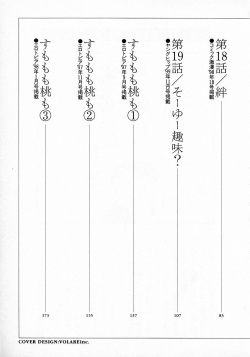 第18話／絆
●コミック激漫'98年10月号掲載
85
第19話／そーゆー趣味？
●ヤングヒップ'98年11月号掲載
107
すももも桃も①
●エロトピア'97年9月号掲載
137
すももも桃も②
●エロトピア'97年11月号掲載
155
すももも桃も③
●エロトピア'98年1月号掲載
173
COVER DESIGN/VOLAREinc.